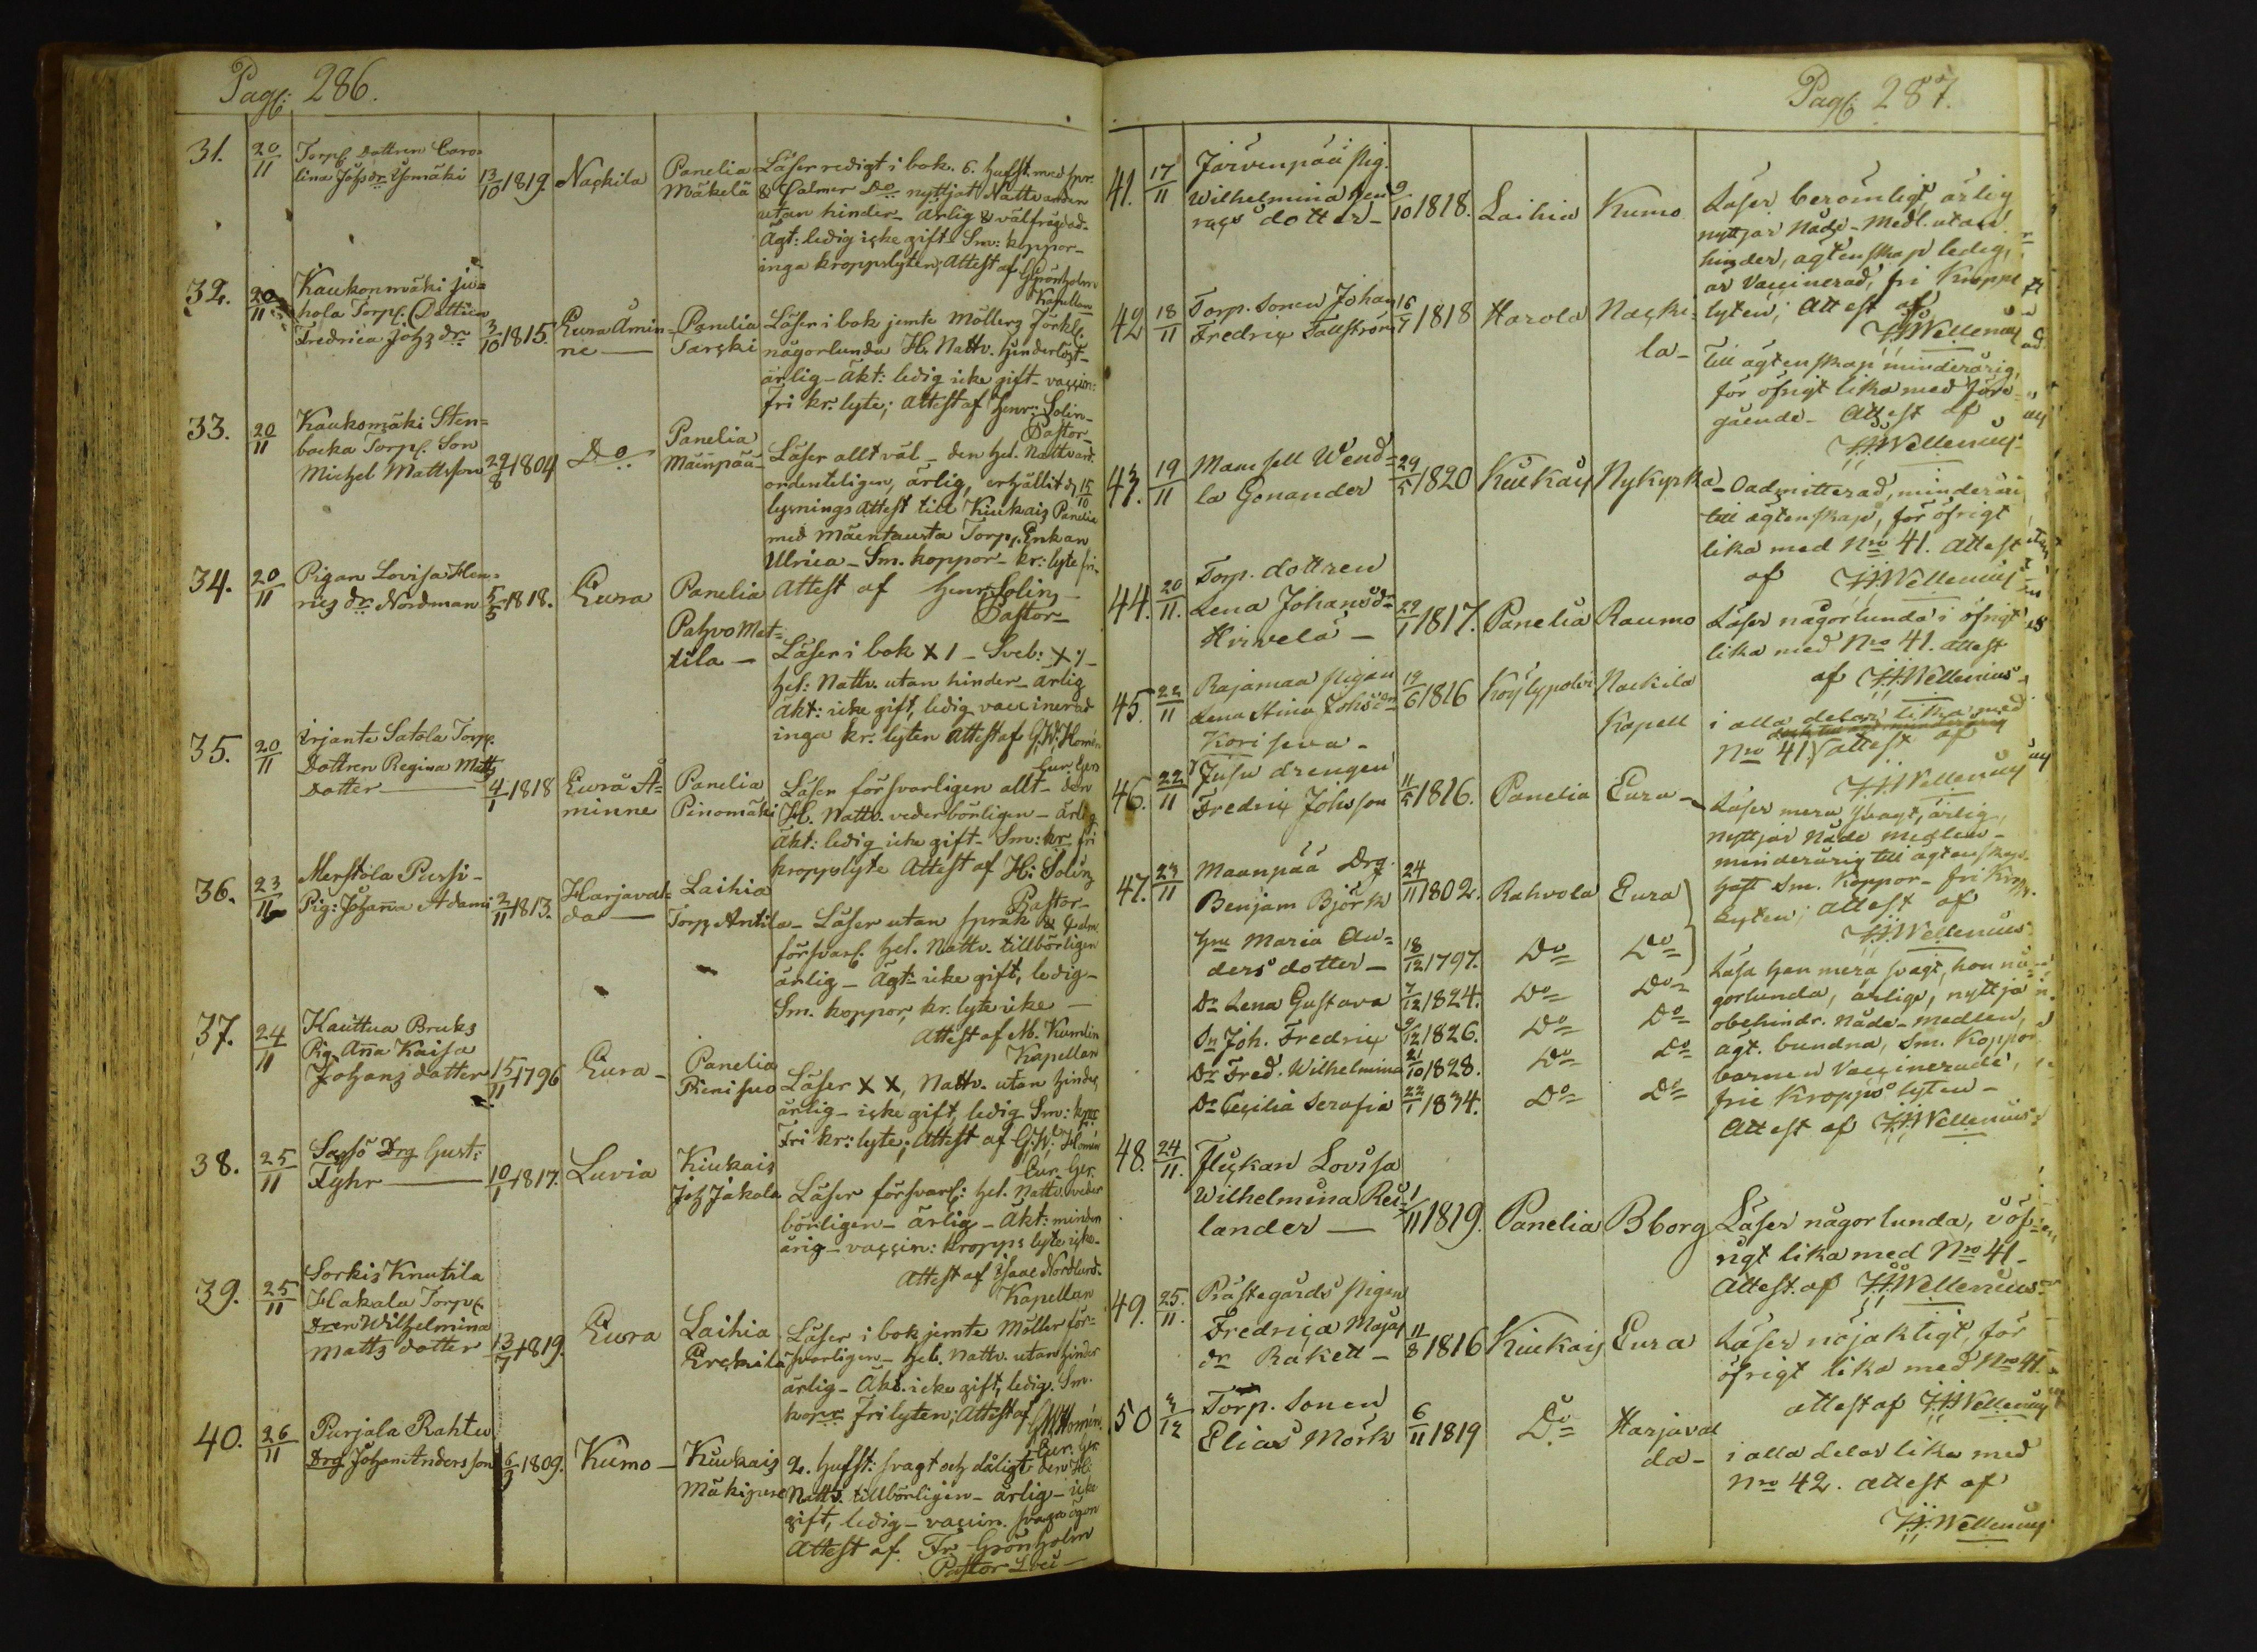 Pag: 286.
31. 20/11 Torp. Dottren Caro=
lina Johsdr Isomäki 13/10 1819. Nackila Panelia Mäkelä
Läser redigt i bok. 6. Hufst. med spr.
& Psalmer Do nyttjat Nattvarden
utan hinder - ärlig & välfrejdad.
Ägt: ledig icke gift Sm: koppor-
inga kroppslyten; Attest af Grönholm
Kapellan
32. 20/11 Kaukonmäki Ju=
hola Torp. Dottren
Fredrica Johs dr 3/10 1815. Eura Åmin=
ne Panelia Sarcki
Läser i bok jemte Möllers förkl.
någorlunda H. Nattv. hinderlöst-
ärlig - Äkt: ledig icke gift - vaccin:
fri kr. lyte; Attest af Henr: Solin
Pastor
33. 20/11 Kaukomäki Sten=
backa Torp. Son
Michel Mattsson 29/8 1804 Do Panelia
Mäenpää
Läser allt väl - den hel. Nattvard.
ordenteligen, ärlig, erhållit d. 15/10
lysnings attest till Kiukais Panelia
med Mäentausta Torp. Enkan
Ulrica - Sm. koppor - kr: lyte fri
Attest af Henr: Solin
Pastor
34. 20/11 Pigan Lovisa Hen=
rics dr Nordman 5/5 1818. Eura Panelia
Pahvo Mat=
tila -
Läser i bok X 1 - Sveb: X 1 -
hel: Nattv. utan hinder - ärlig
Äkt: icke gift, ledig vaccinerad
inga kr. lyten Attest af G.W. Homén
Eur. Ger.
35. 20/11 Irjante Satola Torp.
Dottren Regina Matts
Dotter 4/1 1818 Eura Å=
minne Panelia
Pinomäki
Läser försvarligen allt - den
Hl. Nattv. vederbörligen - ärlig
Äkt: ledig icke gift - Sm: kr fri
kroppslyte Attest af H: Solin
Pastor
36. 23/11 Merstola Pussi -
Pig: Johanna Adams 2/11 1813. Harjaval=
da Laihia
Torp Antila
Läser utan språk & Psalm.
försvarl. hel. Nattv. tillbörligen
ärlig - Ägt: icke gift, ledig -
Sm. koppor, kr. lyte icke -
Attest af M. Kumlin
Kapellan
37. 24/11 Kauttua Bruks
Pig. Anna Kaisa
Johans dotter 15/11 1796 Eura - Panelia
Pienisuo
Läser X X, Nattv. utan hinder,
ärlig - icke gift, ledig Sm: kppr
Fri kr: lyte; Attest af G.W. Homén
Eur. Ger.
38. 25/11 Sassö Drg Gust:
Fyhr 10/1 1817. Luvia Kiukais
Joh Jakola
Läser försvarl: hel. Nattv. veder
börligen - ärlig - Äkt: minder
årig - vaccin: kropps lyte icke.
Attest af Isaac Nordlund.
Kapellan
39. 25/11 Sorkis Knutila
Hakala Torp.
Dren Wilhelmina
Matts dotter 13/7 1819. Eura Laihia
Erckilä
Läser i bok jemte Möller för=
svarligen - hel. Nattv. utan hinder
ärlig - Äkt. icke gift, ledig. Sm.
kopr fri lyten; Attest af GW Homén
Eur. Ger.
40. 26/11 Purjala Rahtu
Drg Johan Andersson 6/3 1809. Kumo - Kiukais
Mäkipere
2. hufst: svagt och dåligt den Hl:
Nattv. tillbörligen - ärlig - icke
gift, ledig - vaccin. svaga ögon
Attest af Fr Grönholm
Pastor Loci
Pag: 287.
41. 17/11 Järvenpää pig.
Wilhelmina Hen
rics dotter - 9/10 1818. Laihia Kumo
Läser berömligt, ärlig
nyttjar Nåde-Medl. utan
hinder, ägtenskap ledig,
är Vaccinerad, fri Kropps
lyten; Attest af
J.H. Wellenius
42 18/11 Torp. Sonen Johan
Fredric Fallström 16/7 1818 Harola Nacki=
la -
Till ägtenskap minderårig,
för öfrigt lika med före
gående - Attest af
J.H. Wellenius
43. 19/11 Mamsell Wend=
la Gonander 29/5 1820 Kiukais Nykyrka
Oadmitterad, minderåri
till ägtenskap, för öfrigt
lika med Nro 41. Attest
af J.H. Wellenius
44. 20/11. Torp. dottren
Lena Johansdr
Hirvelä - 29/1 1817. Panelia Raumo
Läser någorlunda i öfrigt
lika med Nro 41. Attest
af J.H. Wellenius
45. 22/11 Rajamaa pigan
Lena Stina Johsdr
Koriseva - 19/6 1816 Köylypolvi Nackila
Kapell
i alla delar lika med
Nro 41. attest af
J.H. Wellenius
46. 22/11 Jusu drengen
Fredric Johsson 11/5 1816. Panelia Eura -
Läser mera svagt, ärlig,
nyttjar Nåde medlen -
minderårig till ägtenskap
haft Sm. Koppor - fri Kropps
lyten; attest af
J.H. Wellenius
47. 23/11 Maanpää Drg.
Benjam Björk 24/11 1802. Rahvola Eura
Hu Maria An=
ders dotter - 18/12 1797. Do Do
Dr Lena Gustava 7/12 1824. Do Do
Sn Joh. Fredric 9/12 1826. Do Do
Dr Fred. Wilhelmina 21/10 1828. Do Do
Dr Cecilia Serafia 22/1 1834. Do Do
Läsa han mera svagt, hon nå=
gorlunda, ärliga, nyttja
obehindr. Nåde-medlen,
ägt. bundna, Sm. Koppor
barnen Vaccinerade,
frie Kropps lyten -
Attest af J.H. Wellenius
48. 24/11. Flickan Lovisa
Wilhelmina Reu=
lander - 1/11 1819. Panelia Bborg
Läser någorlunda, i öf=
rigt lika med Nro 41 -
Attest af J.H. Wellenius
49. 25/11. Prästegårds pigan
Fredrica Majas
dr Rakett - 11/8 1816 Kiukais Eura
Läser nöjaktigt, för
öfrigt lika med Nro 41.
attest af J.H. Wellenius
50 3/12 Torp. Sonen
Elias Mörk 6/11 1819 Do Harjaval
da -
i alla delar lika med
Nro 42. attest af
J.H. Wellenius